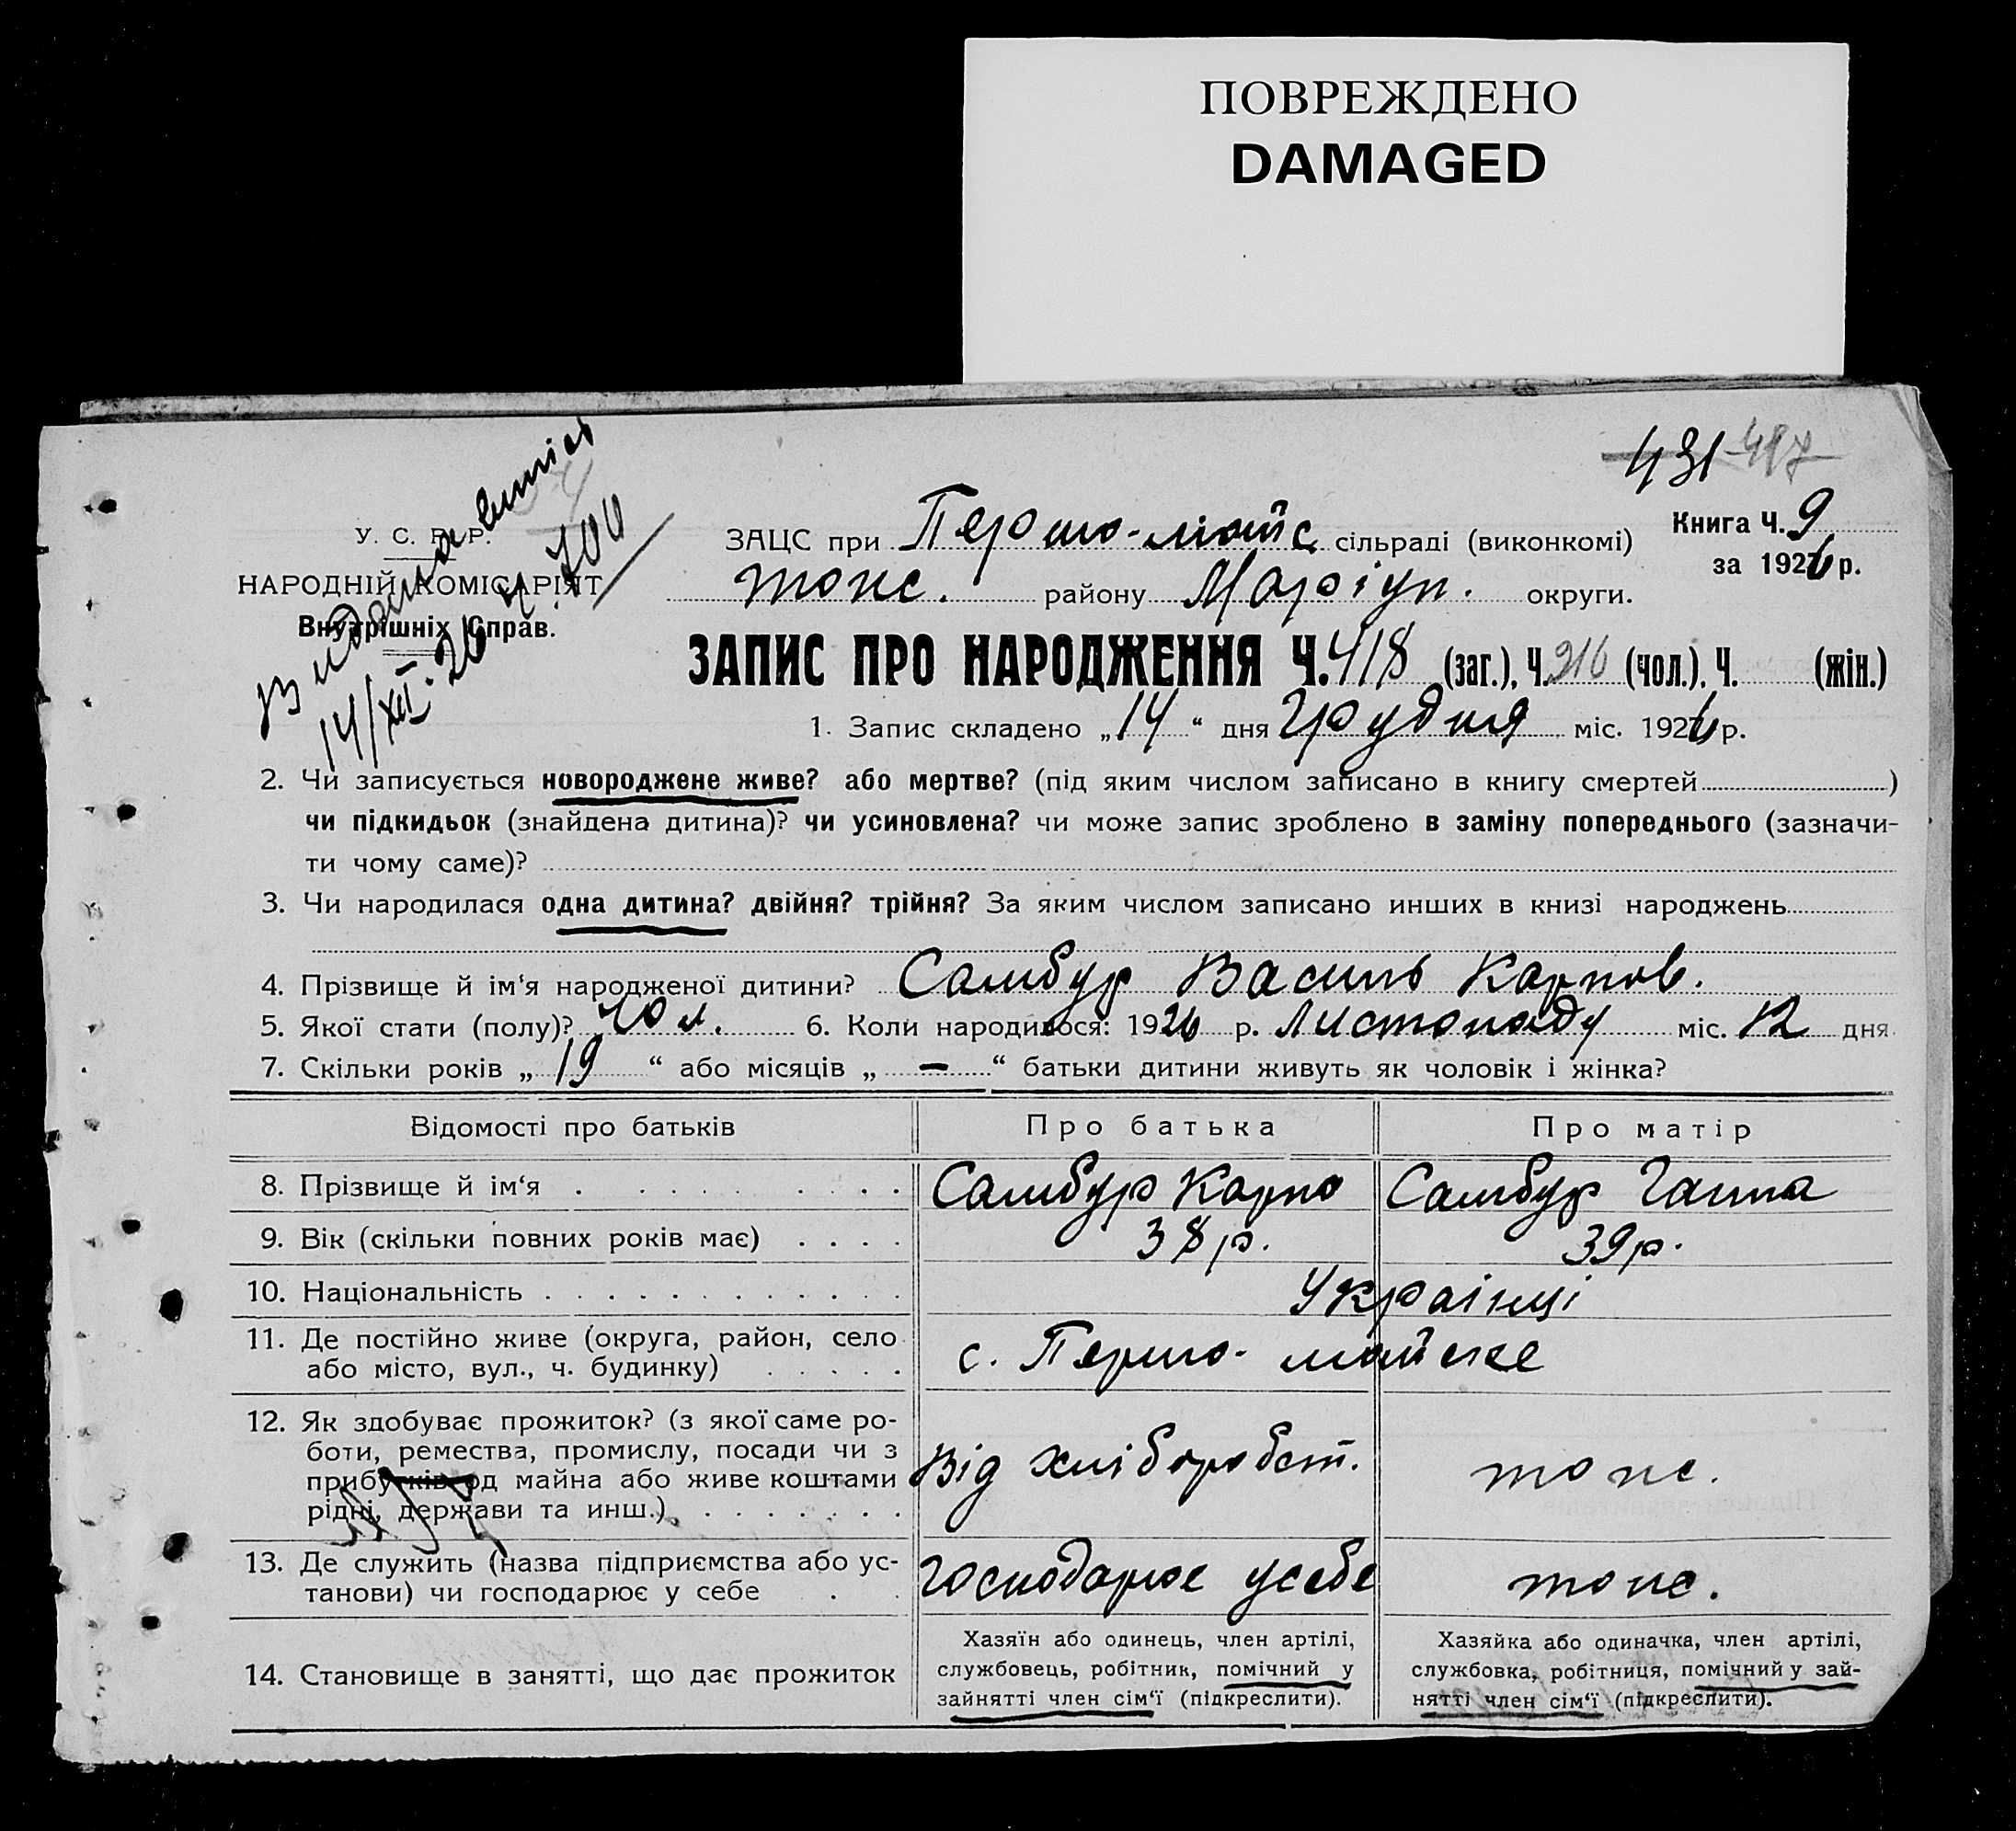 ПОВРЕЖДЕНО
DAMAGED
431 417
Видана виписъ
14/XII-26 ч. 700
У. С. Р. Р.
НАРОДНІЙ КОМІСАРІЯТ
Внутрішніх Справ.
Книга Ч. 9
за 1926 р.
ЗАЦС при Першо-майс сільраді (виконкомі)
тоже. району Маріуп. округи.
ЗАПИС ПРО НАРОДЖЕННЯ Ч. 418 (заг.), Ч. 216 (чол.), Ч. (жін.)
1. Запис складено „14“ дня Грудня міс. 1926 р.
2. Чи записується новороджене живе? або мертве? (під яким числом записано в книгу смертей )
чи підкидьок (знайдена дитина)? чи усиновлена? чи може запис зроблено в заміну попереднього (зазначи-
ти чому саме)?
3. Чи народилася одна дитина? двійня? трійня? За яким числом записано инших в книзі народжень
4. Прізвище й ім‘я народженої дитини? Самбур Василь Карпов.
5. Якої стати (полу)? чол. 6. Коли народилося: 1926 р. Листопаду міс. 12 дня
7. Скільки років „19“ або місяців „—“ батьки дитини живуть як чоловік і жінка?
Відомості про батьків Про батька Про матір
8. Прізвище й ім‘я Самбур Карпо Самбур Ганна
9. Вік (скільки повних років має) 38 р. 39 р.
10. Національність Украінці
11. Де постійно живе (округа, район, село
або місто, вул., ч. будинку) с. Першо-майське
12. Як здобуває прожиток? (з якої саме ро-
боти, ремества, промислу, посади чи з
прибутків од майна або живе коштами
рідні, держави та инш.) Від хліборобст. тоже.
13. Де служить (назва підприємства або ус-
танови) чи господарює у себе Господарює усебе тоже.
14. Становище в занятті, що дає прожиток
Хазяїн або одинець, член артілі,
службовець, робітник, помічний у
зайнятті член сім‘ї (підкреслити).
Хазяйка або одиначка, член артілі,
службовка, робітниця, помічний у зай-
нятті член сім‘ї (підкреслити).